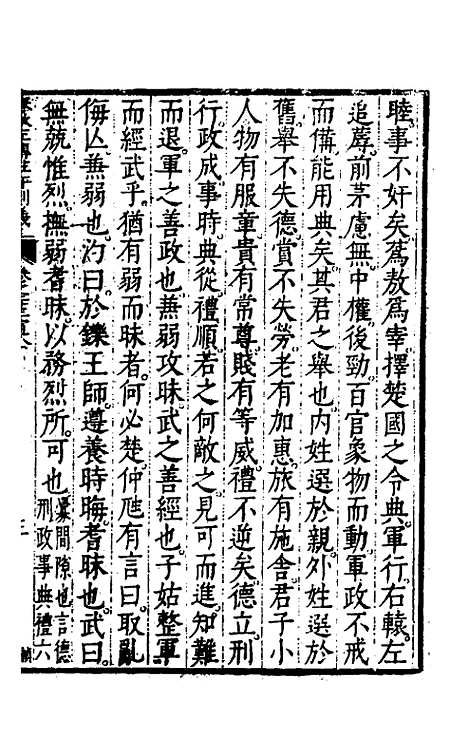 睦事不奸矣蒍敖為宰擇楚國之令典軍行右轅左
追蓐前茅慮無中權後勁百官象物而動軍政不戒
而備能用典矣其君之舉也内姓選於親外姓選於
舊舉不失德賞不失勞老有加惠旅有施舍君子小
人物有服章貴有常尊賤有等威禮不逆矣德立刑
行政成事時典從禮順若之何敵之見可而進知難
而退軍之善政也兼弱攻昧武之善經也子姑整軍
而經武乎猶有弱而昧者何必楚仲虺有言曰取亂
侮亾兼弱也汋曰於鑠王師遵養時晦耆昧也武曰
無兢惟烈撫弱耆昧以務烈所可也
釁間隙也言德
刑政事典禮六